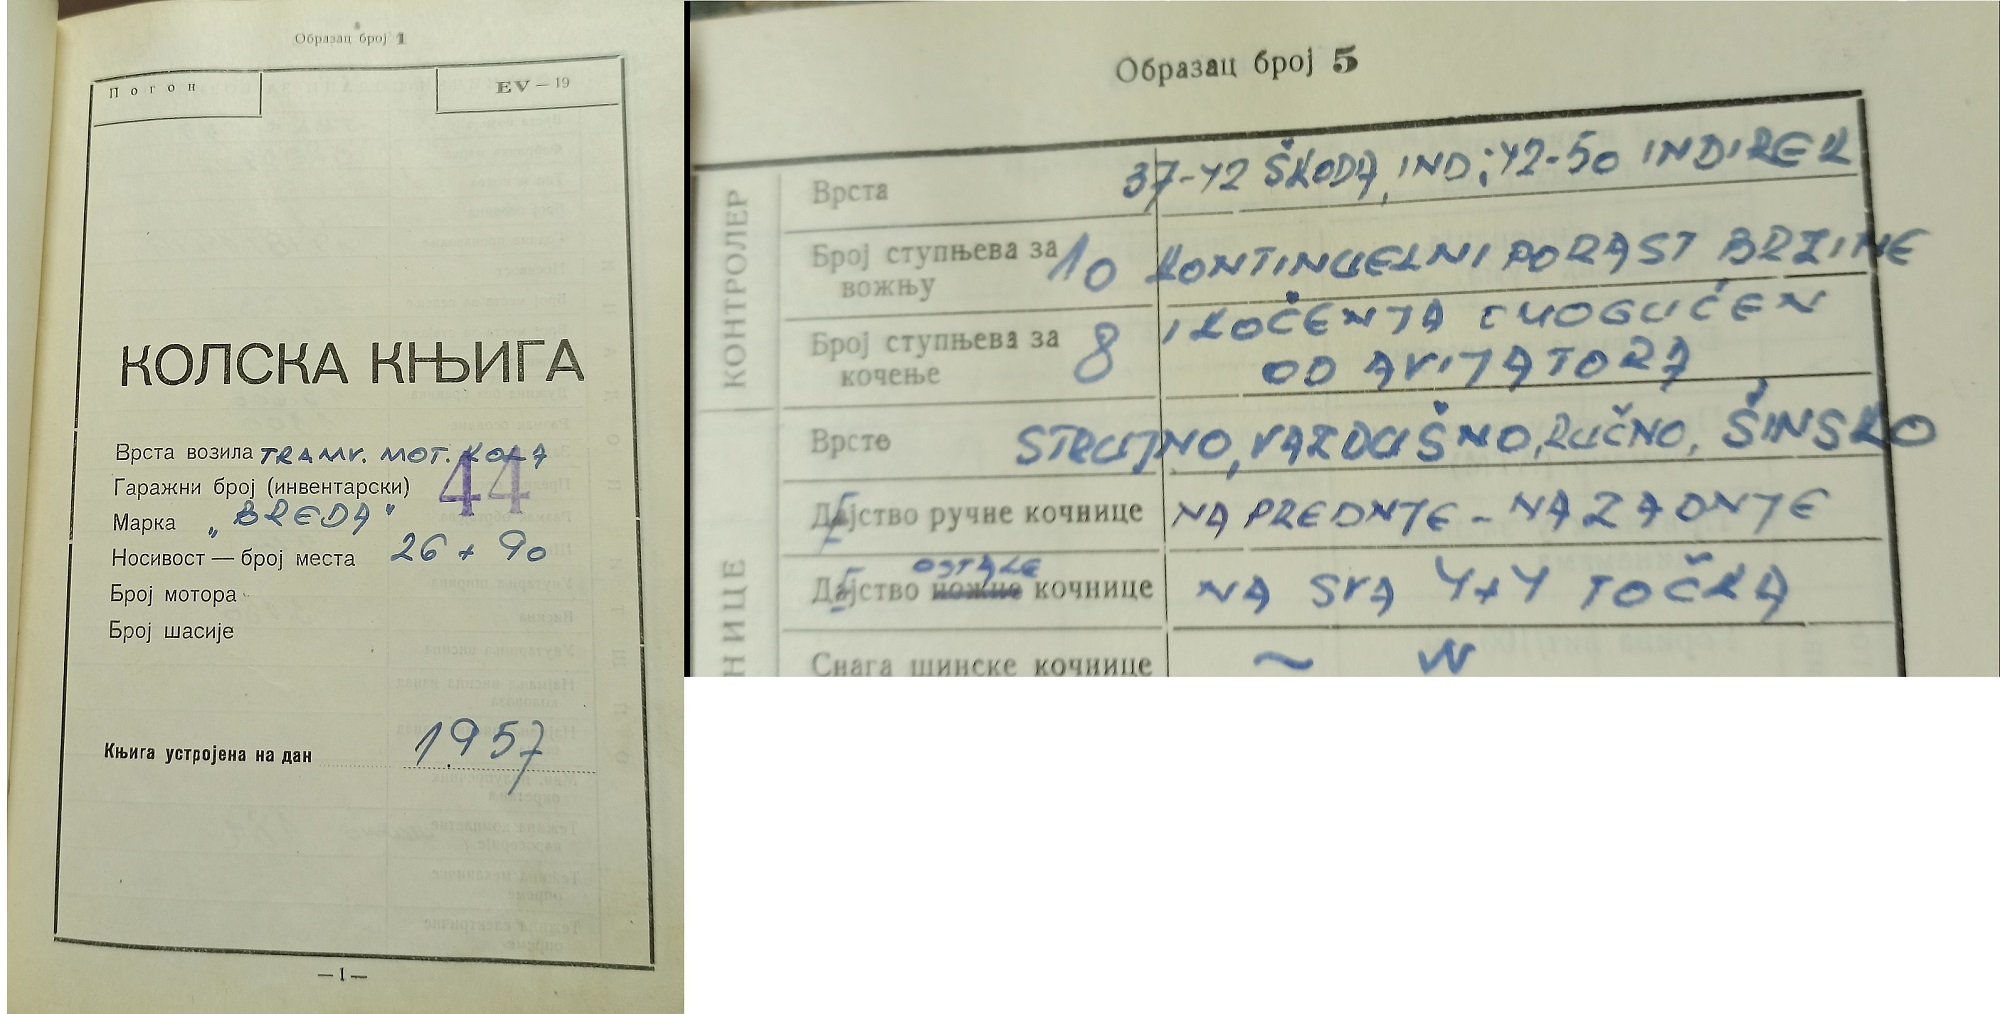 Образац број 1
Погон
EV — 19
КОЛСКА КЊИГА
Врста возила TRAMV. MOT. KOLA
Гаражни број (инвентарски) 44
Марка „BREDA"
Носивост — број места 26 + 90
Број мотора
Број шасије
Књига устројена на дан 1957
— 1 —
Образац број 5
КОНТРОЛЕР
Врста 37-42 ŠKODA, IND; 42-50 INDIREK
Број ступњева за вожњу 10 KONTINUELNI PORAST BRZINE
Број ступњева за кочење 8 I KOČENJA OMOGUĆEN
OD AVIJATORA
НИЦЕ
Врсте STRUJNO, VAZDUŠNO, RUČNO, ŠINSKO
Дејство ручне кочнице NA PREDNJE - NA ZADNJE
OSTALE
Дејство ножне кочнице NA SVA 4+4 TOČKA
Снага шинске кочнице ~ N